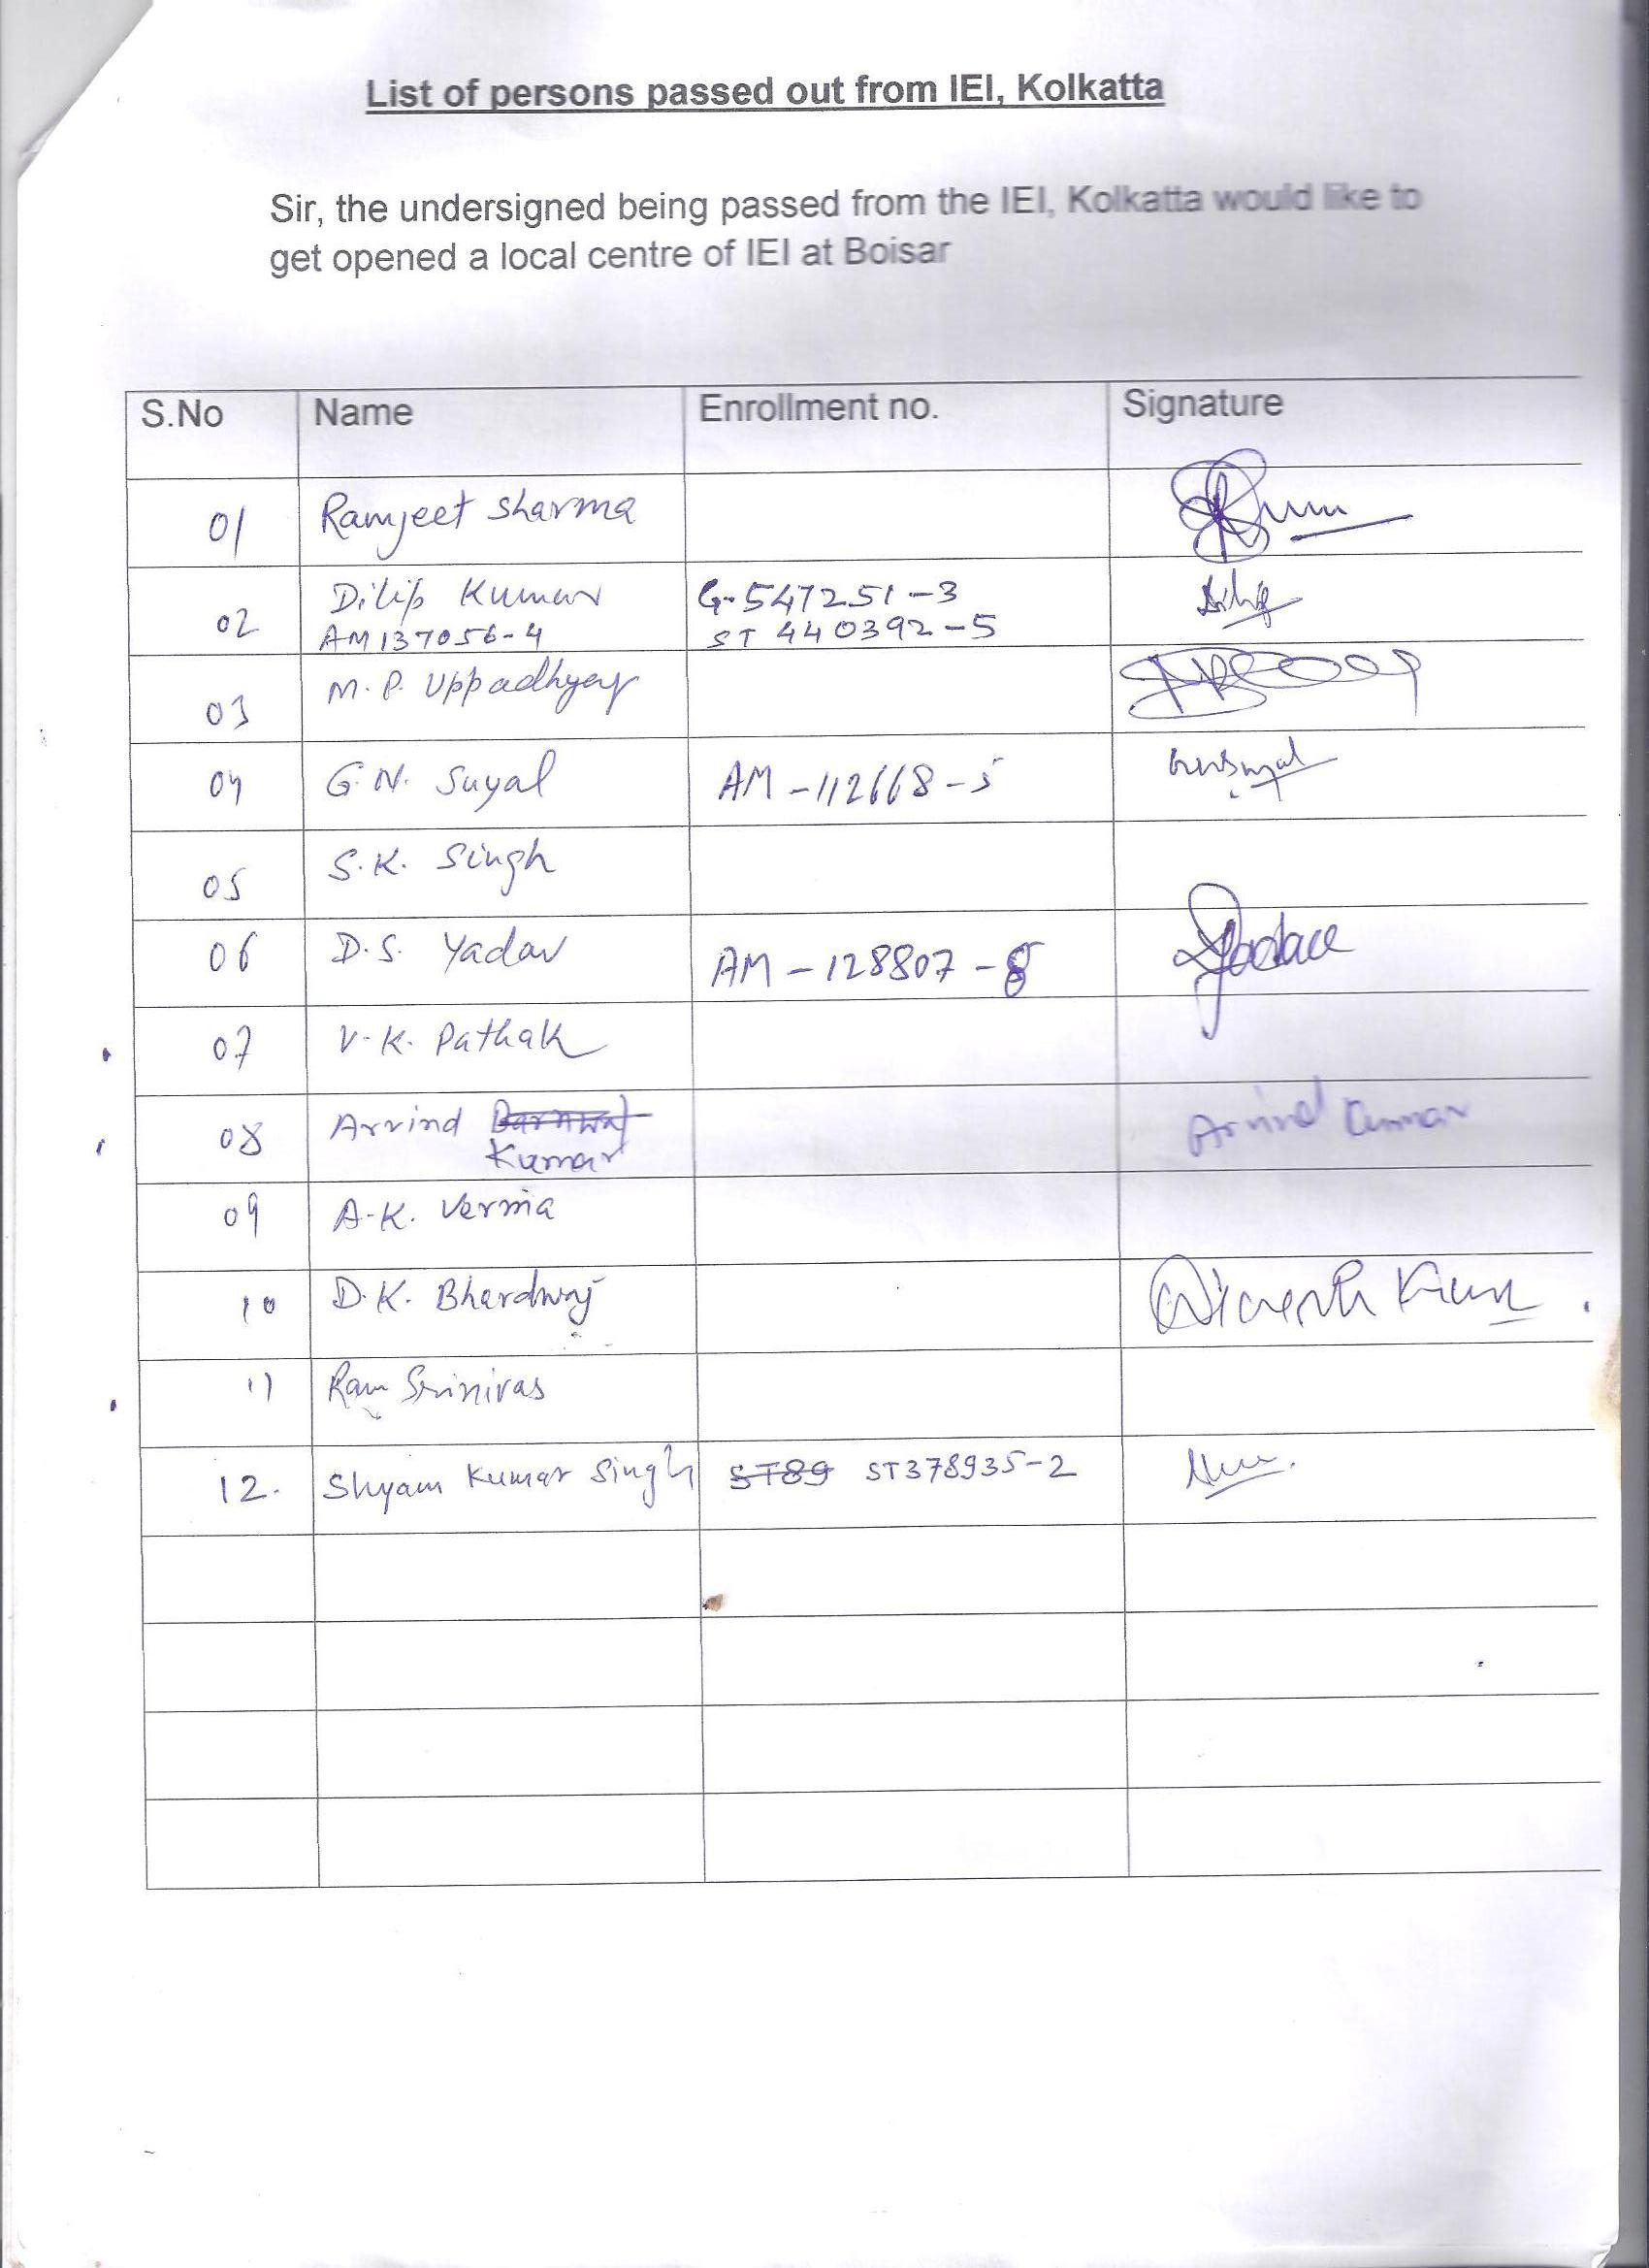 List of persons passed out from IEI, Kolkatta
Sir, the undersigned being passed from the IEI, Kolkatta would like to
get opened a local centre of IEI at Boisar
S.No Name Enrollment no. Signature
01 Ramjeet Sharma
02 Dilip Kumar G-547251-3
AM137056-4 ST 440392-5
03 M.P. Uppadhyay
04 G.N. Suyal AM-112668-5
05 S.K. Singh
06 D.S. Yadav AM-128807-8
07 V.K. Pathak
08 Arvind Barnwal Arvind Kumar
Kumar
09 A.K. Verma
10 D.K. Bhardwaj Dinesh Kumar
11 Ram Srinivas
12. Shyam Kumar Singh ST89 ST378935-2